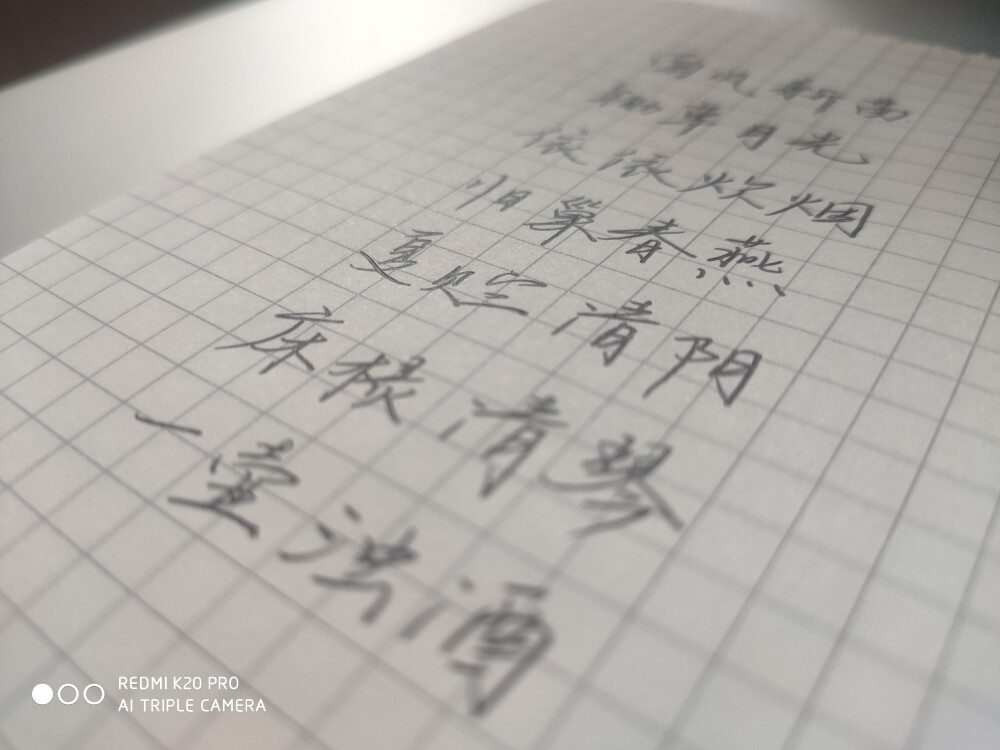 风新
锄草月光
依依炊烟
归巢春燕
夏贮清阴
床横清琴
一壶浊酒
REDMI K20 PRO
AI TRIPLE CAMERA